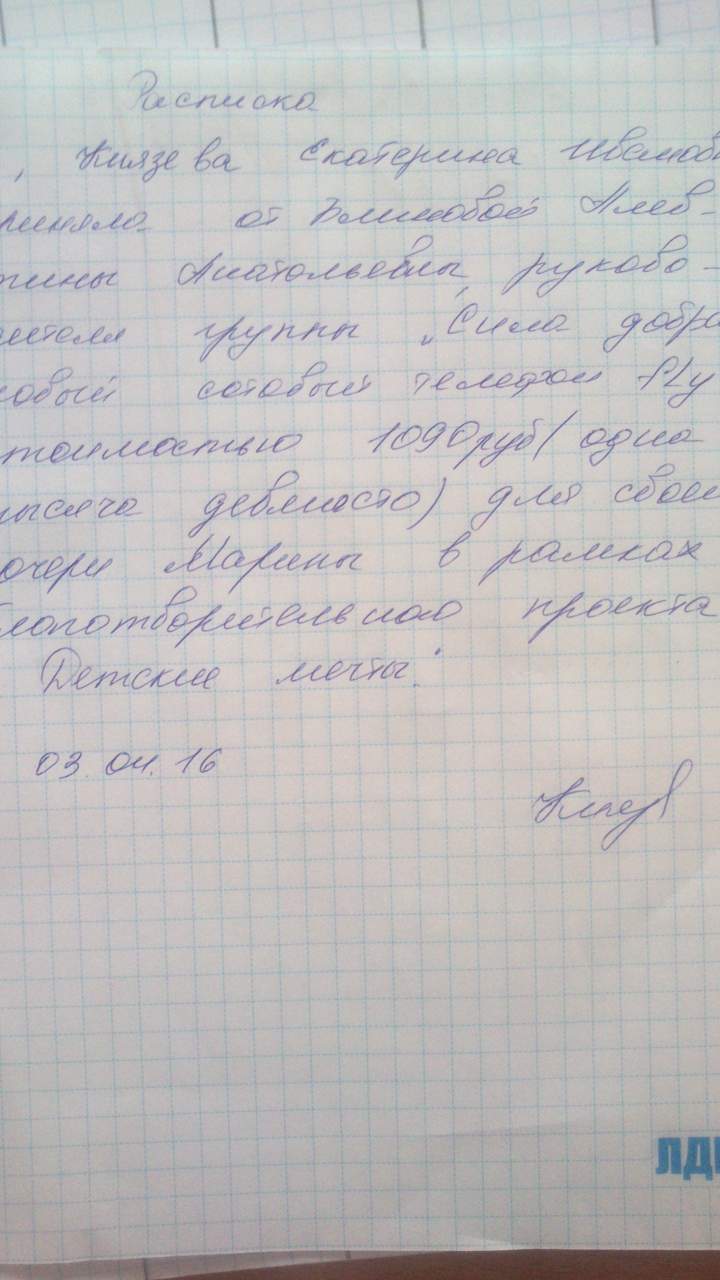 Расписка
, Князева Екатерина Ивановн
риняла от Блиновой Алев-
тины Анатольевны, руково-
дителя группы „Сила добра
новый сотовый телефон Fly
тоимостью 1090 руб (одна
тысяча девяносто) для своей
очери Марины в рамках
лаготворительного проекта
Детские мечты".
03.04.16
ЛД